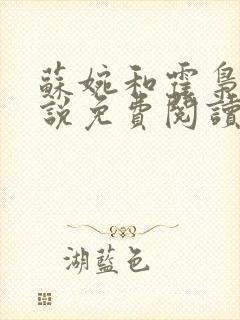 蘇婉和霆梟
說免費閱讀
湖藍色